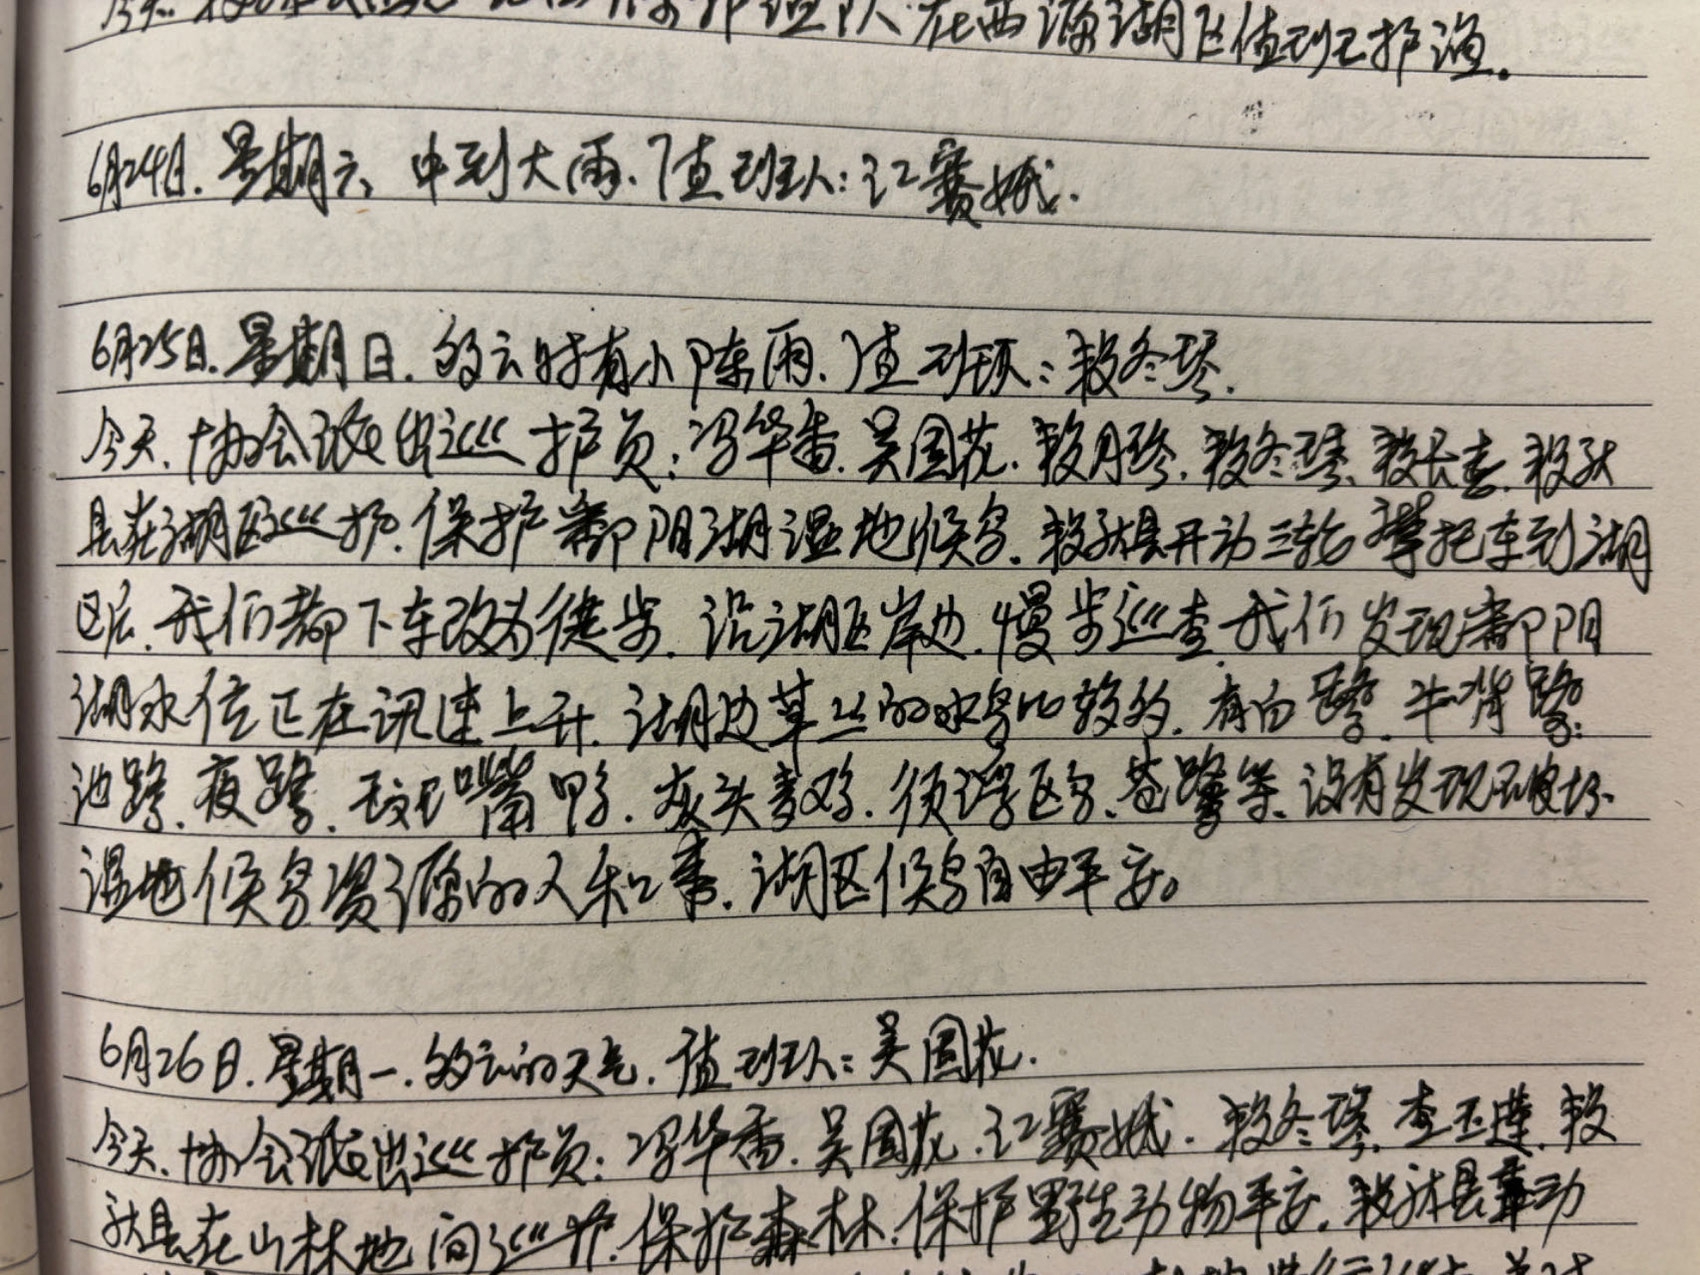 在西源湖区值班护渔。
6月24日.星期六、中到大雨.值班人:江赛娥.
6月25日.星期日.多云时有小阵雨.值班人:敖冬琴.
今天.协会派出巡护员:冯华香.吴国花.敖月琴.敖冬琴.敖长意.敖秋
县在湖区巡护.保护鄱阳湖湿地候鸟.敖秋县开动三轮摩托车到湖
区后.我们都下车改为徒步.沿湖区岸边.慢步巡查我们发现鄱阳
湖水位正在讯速上升.湖边草丛的水鸟比较多.有白鹭.牛背鹭.
池鹭.夜鹭.斑嘴鸭.灰头麦鸡.须浮鸥.苍鹭等.没有发现破坏
湿地候鸟资源的人和事.湖区候鸟自由平安。
6月26日.星期一.多云的天气.值班人:吴国花.
今天.协会派出巡护员:冯华香.吴国花.江赛娥.敖冬琴.李玉莲.敖
秋县在山林地间巡护.保护森林.保护野生动物平安.敖秋县车动